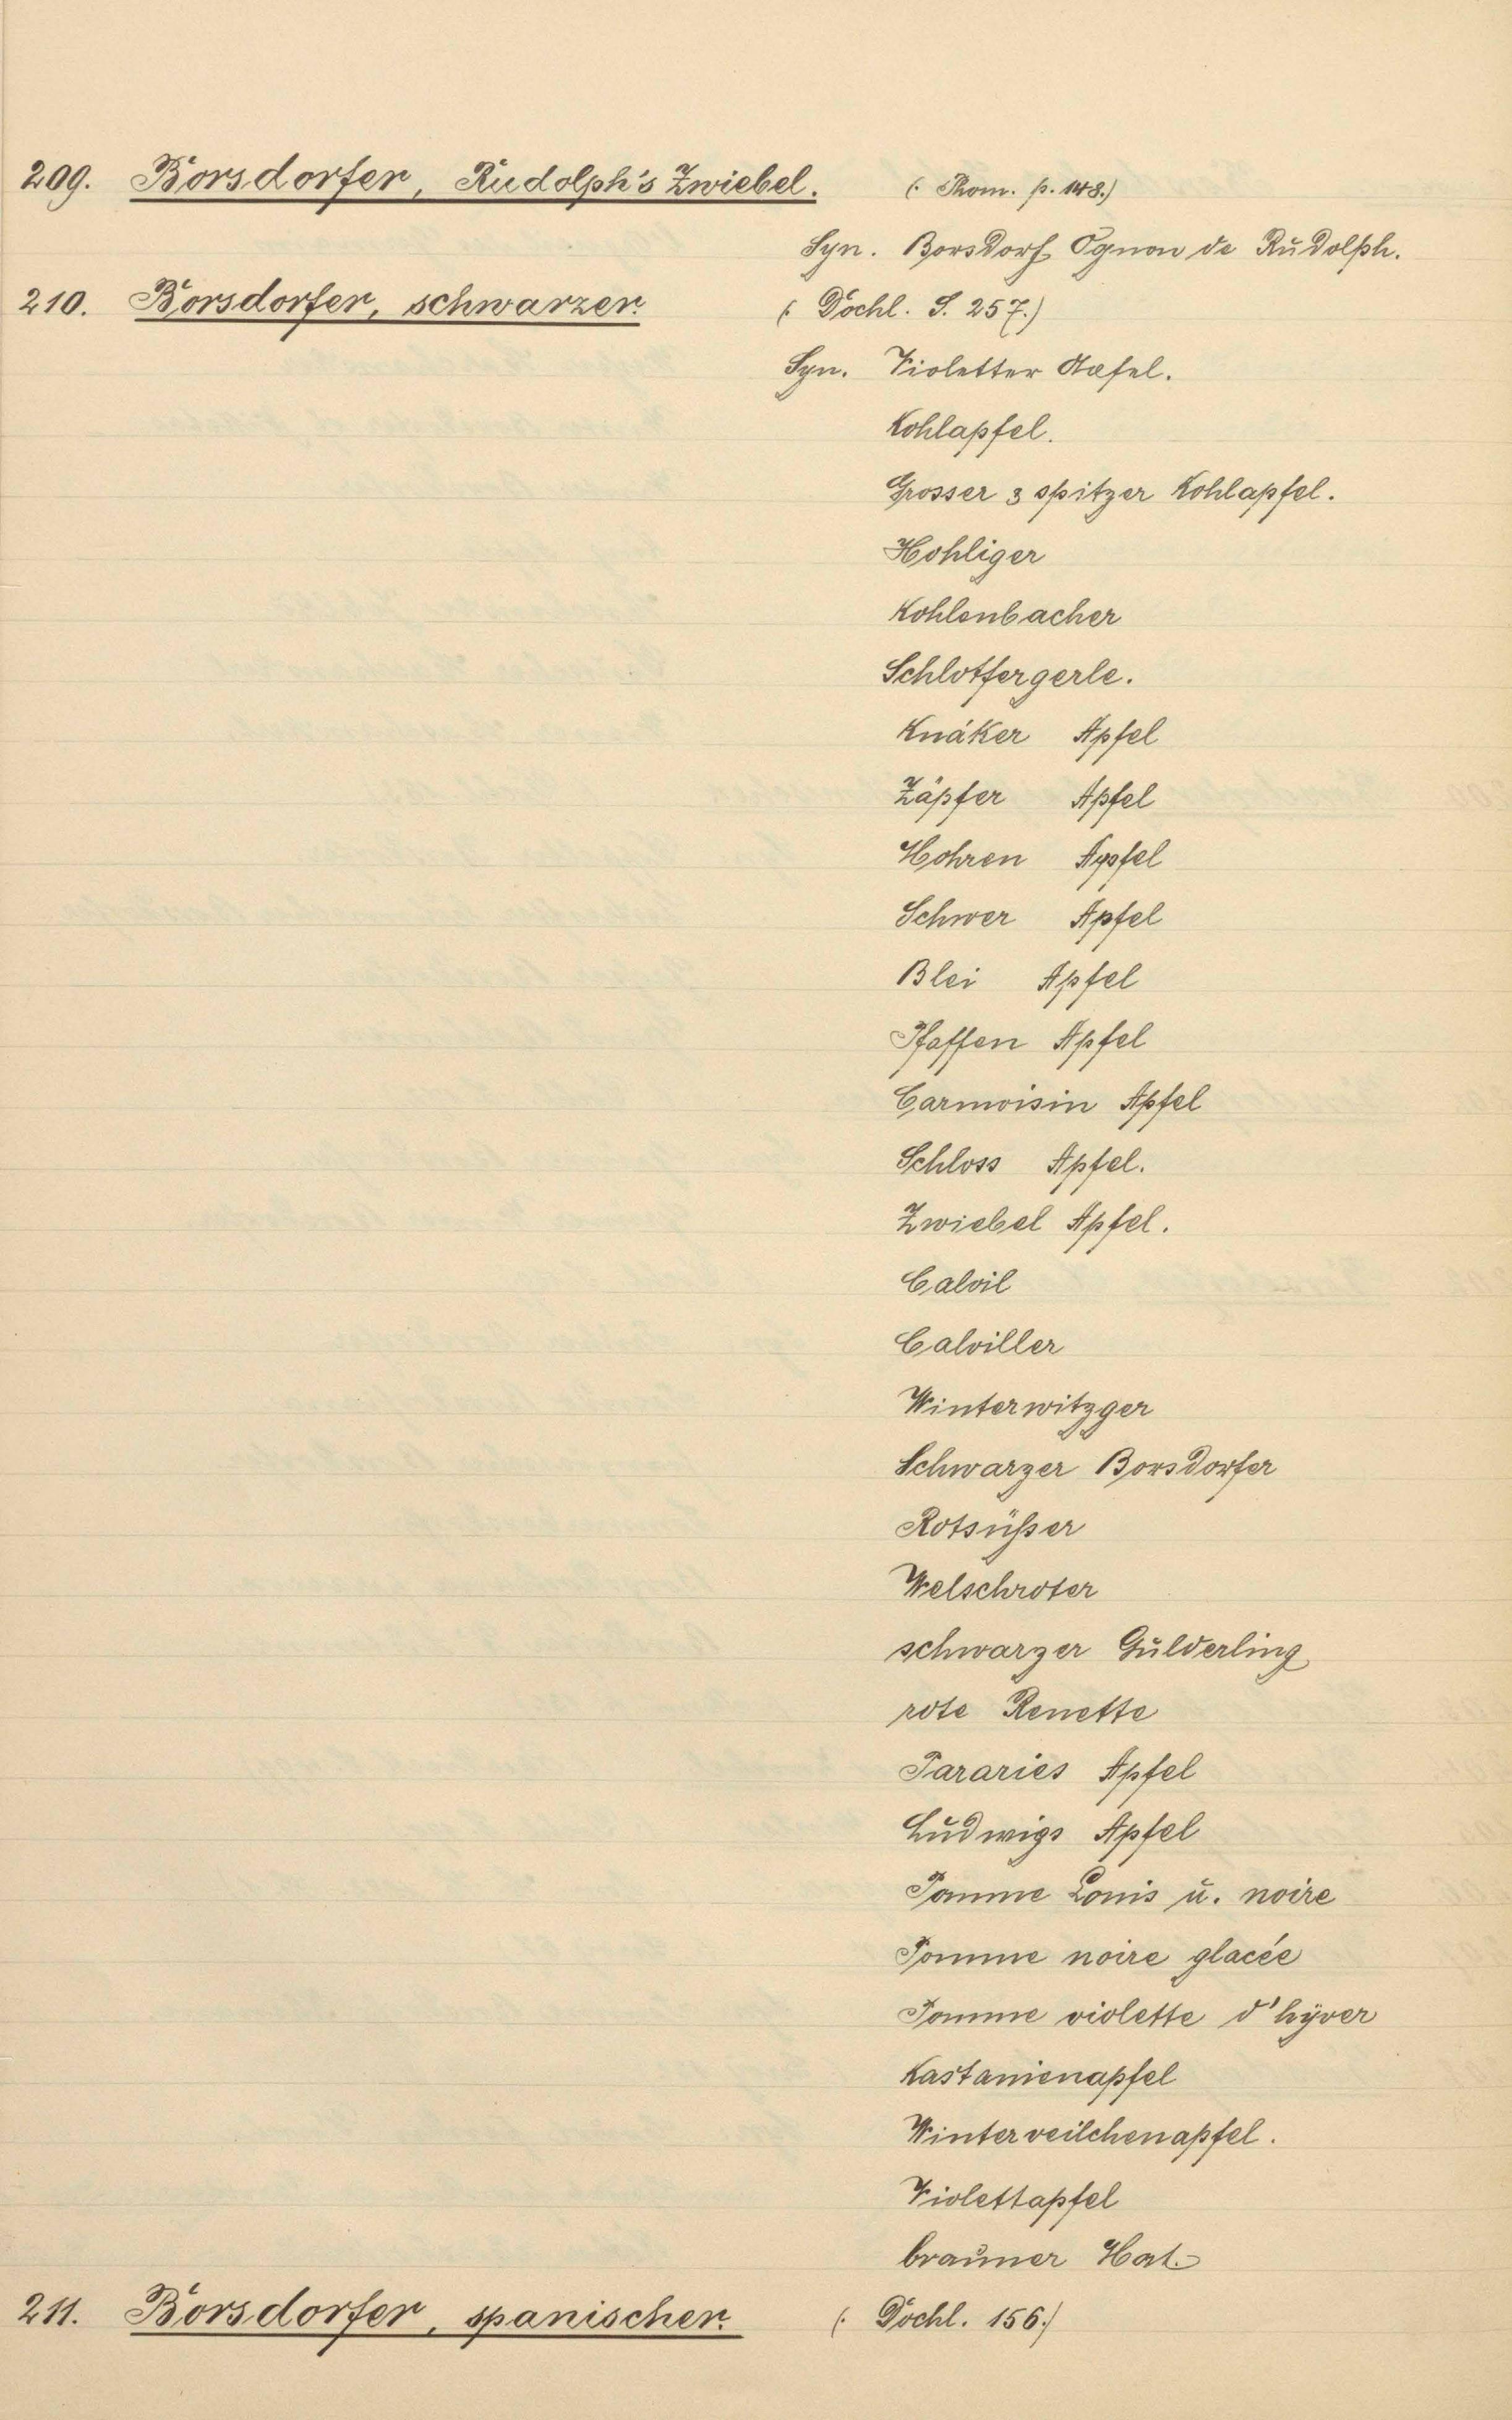 209. Borsdorfer, Rudolph's Zwiebel. (: Thom. p. 148.)
Syn. Borsdorf Ognon de Rudolph.
210. Borsdorfer, schwarzer. (: Dochl. S. 257.)
Syn. Violetter Apfel.
Kohlapfel.
Grosser 3 spitzer Kohlapfel.
Hohliger
Kohlenbacher
Schlotfergerle.
Knäker Apfel
Zäpfer Apfel
Hohren Apfel
Schwer Apfel
Blei Apfel
Pfaffen Apfel
Carmoisin Apfel
Schloss Apfel.
Zwiebel Apfel.
Calvil
Calviller
Winterwitzger
Schwarzer Borsdorfer
Rotsüßer
Welschroter
schwarzer Gulderling
rote Renette
Pararies Apfel
Ludwigs Apfel
Pomme Louis u. noire
Pomme noire glacée
Pomme violette d'hÿver
Kastanienapfel
Winterveilchenapfel.
Violettapfel
brauner Hat.
211. Borsdorfer, spanischer. (: Dochl. 156.)